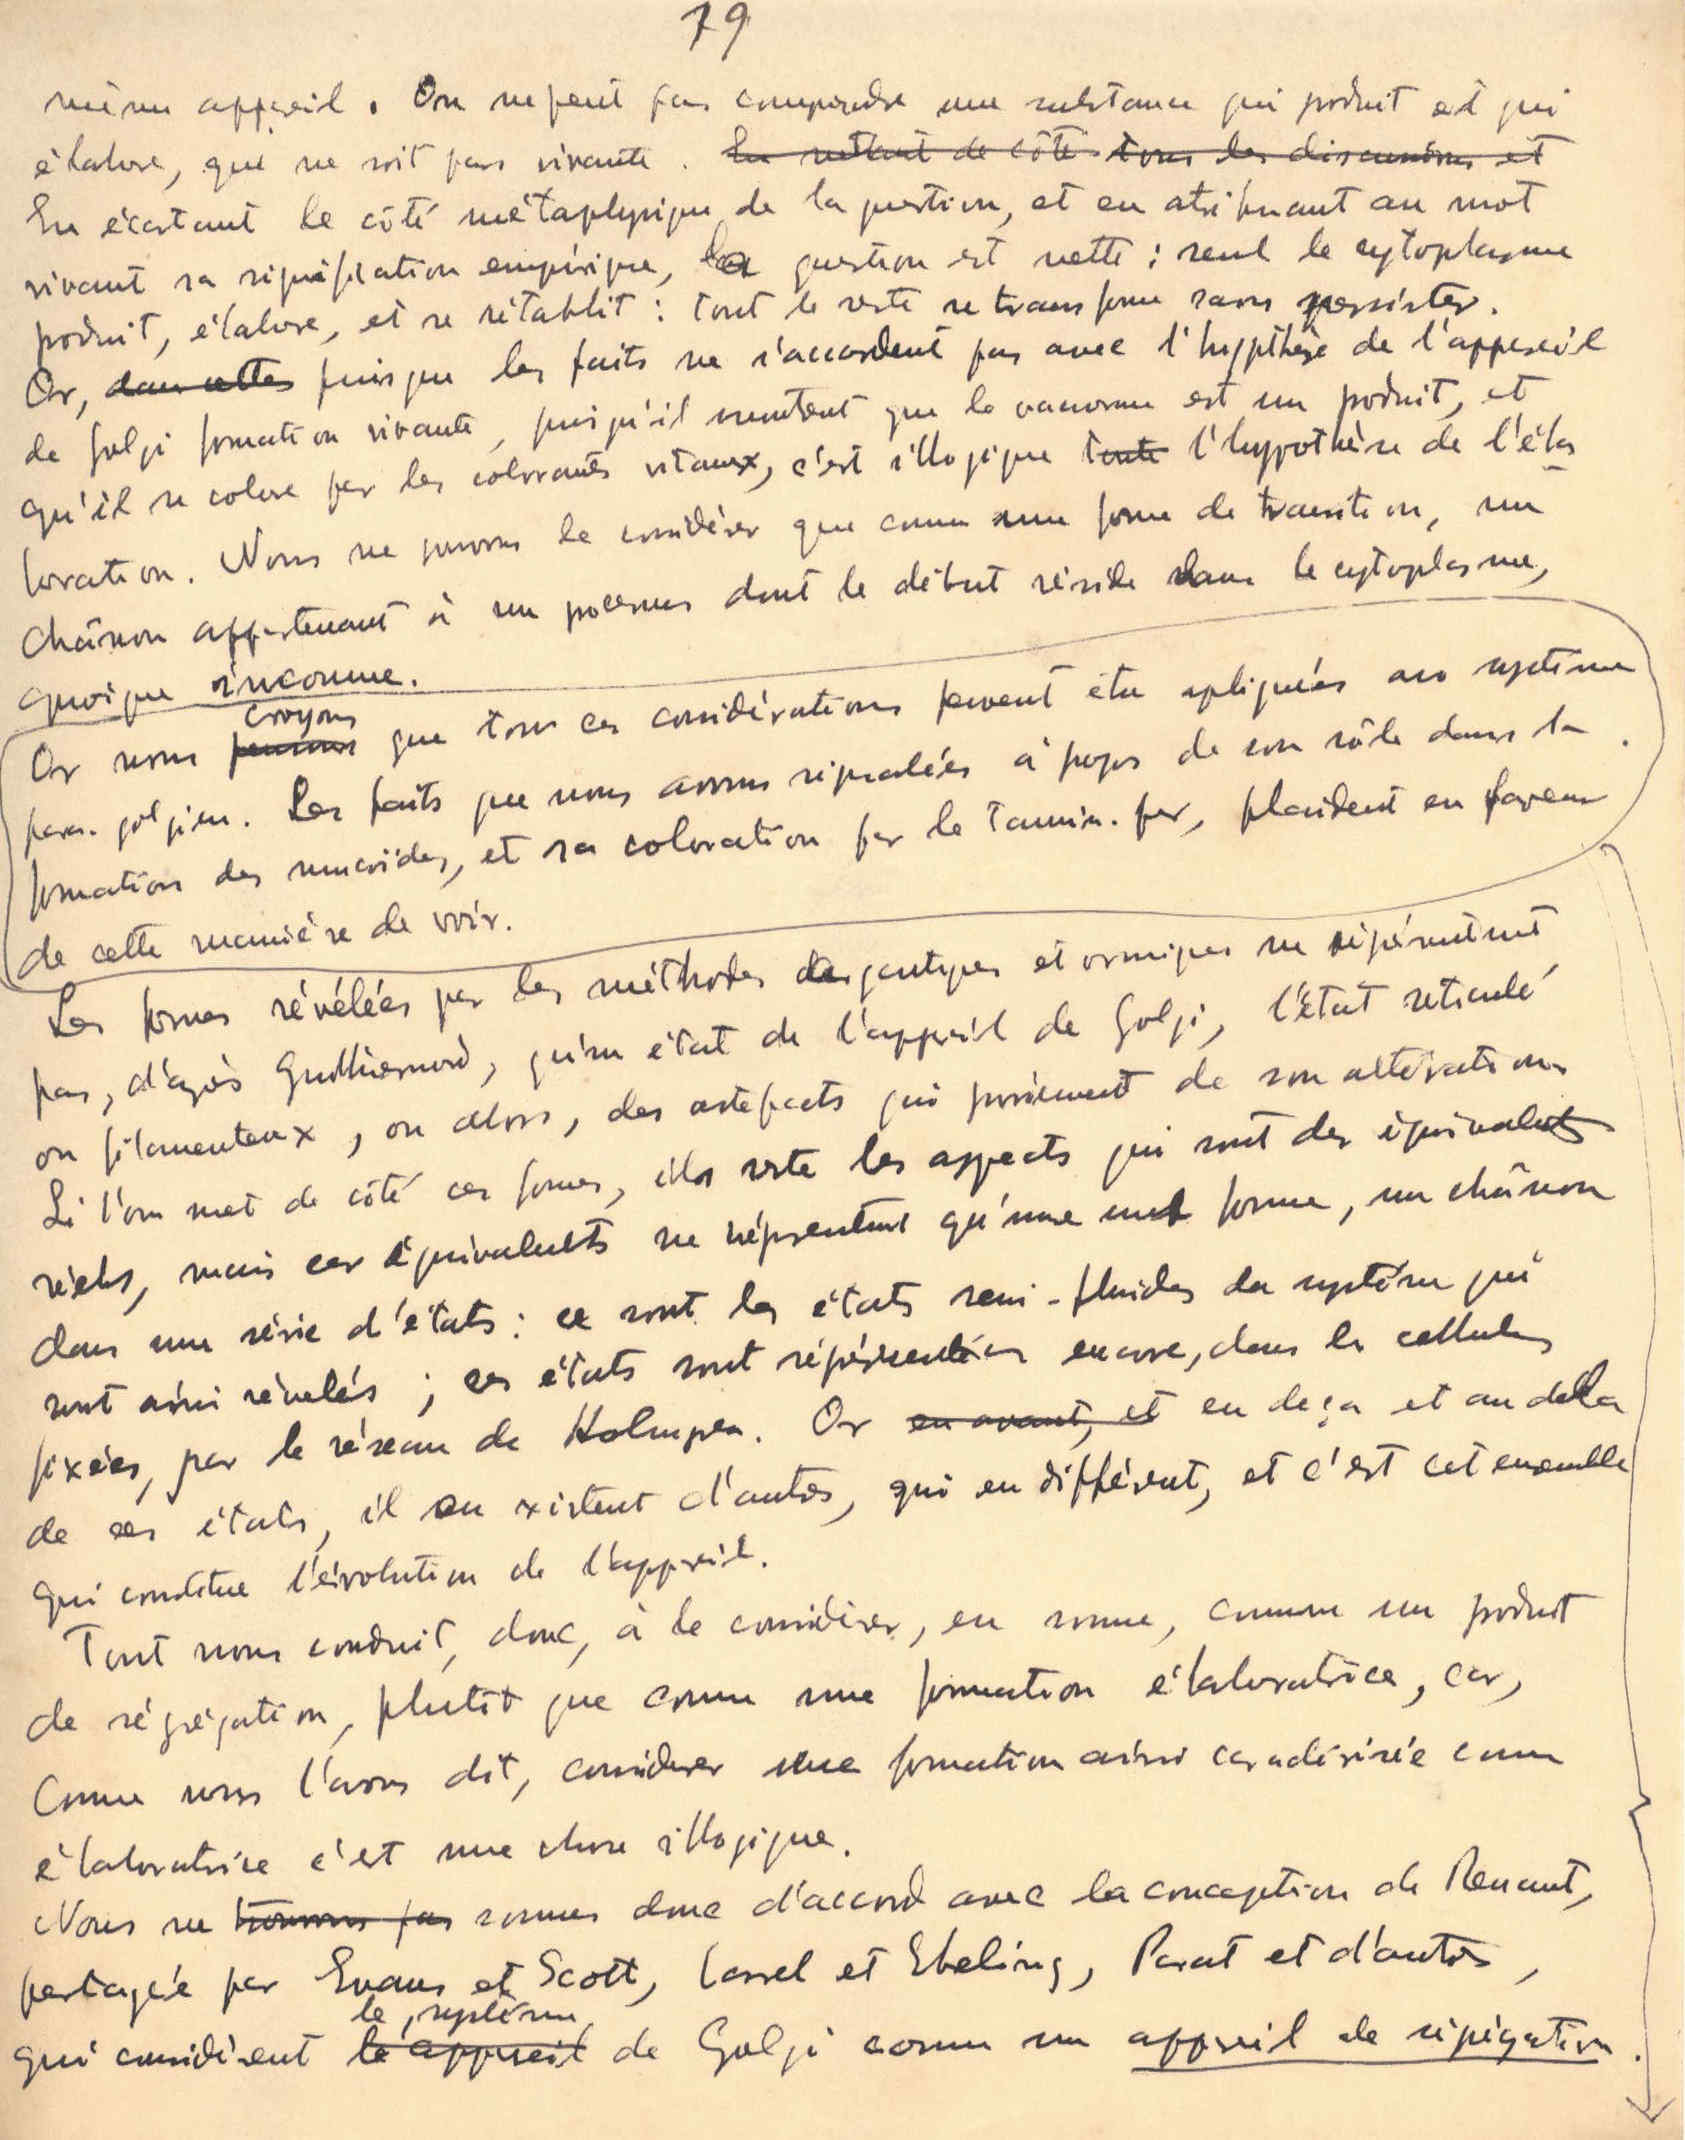 79
même appareil. On ne peut pas comprendre une substance qui produit et qui
élabore, que ne soit pas vivante. En mettant de côté tous les discussions et
En écartant le côté métaphysique de la question, et en attribuant au mot
vivant sa signification empirique, la question est nette : seul le cytoplasme
produit, élabore, et se rétablit : tout le reste se transforme sans persister.
Or, dans cettes puisque les faits ne s'accordent pas avec l'hypothèse de l'appareil
de Golgi formation vivante, puisqu'il montrent que le vacuome est un produit, et
qu'il se colore par les colorants vitaux, c'est illogique toute l'hypothèse de l'éla
boration. Nous ne pouvons le considérer que comme une forme de transition, un
chaînon appartenant à un processus dont le début réside dans le cytoplasme,
quoique inconnue.
croyons
Or nous pensons que tous ces considérations peuvent être apliquées au système
para-golgien. Les faits que nous avons signalées à propos de son rôle dans la
formation des mucoïdes, et sa coloration par le tannin-fer, plaident en faveur
de cette manière de voir.
Les formes révélées par les méthodes argentiques et osmiques ne répéresentent
pas, d'après Guilliermond, qu'un état de l'appareil de Golgi, l'état reticulé
ou filamenteux, ou alors, des artefacts qui proviennent de son altération.
Si l'on met de côté ces formes, il reste les aspects qui sont des équivalents
réels, mais ces équivalents ne réprésentent qu'une forme, un chaînon
dans une série d'états : ce sont les états semi-fluides du système qui
sont ainsi révelés ; ces états sont répérésentées encore, dans les cellules
fixées, par le réseau de Holmgren. Or en avant, et en deça et au dela
de ces états, il en existent d'autres, qui en différent, et c'est cet ensemble
qui constitue l'évolution de l'appareil.
Tout nous conduit, donc, à le considérer, en somme, comme un produit
de ségrégation, plutôt que comme une formation élaboratrice, car,
comme nous l'avons dit, considerer une formation ainsi caractérisée comme
élaboratrice c'est une chose illogique.
Nous ne trouvons pas sommes donc d'accord avec la conception de Renaut,
partagée par Evans et Scott, Carrel et Ebeling, Parat et d'autres,
le système
qui considèrent le appareil de Golgi comme un appareil de ségrégation.